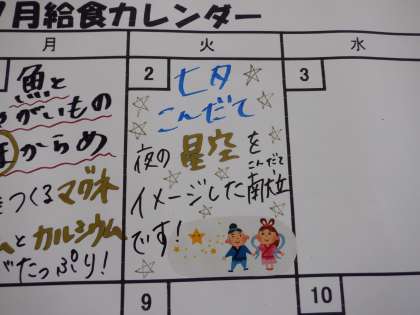 月給食カレンダー
月 火 水
魚と
がいもの
からめ
つくるマグネ
とカルシウム
たっぷり!
2
七夕
こんだて
夜の星空を
イメージした献立
こんだて
です!
3
9
10